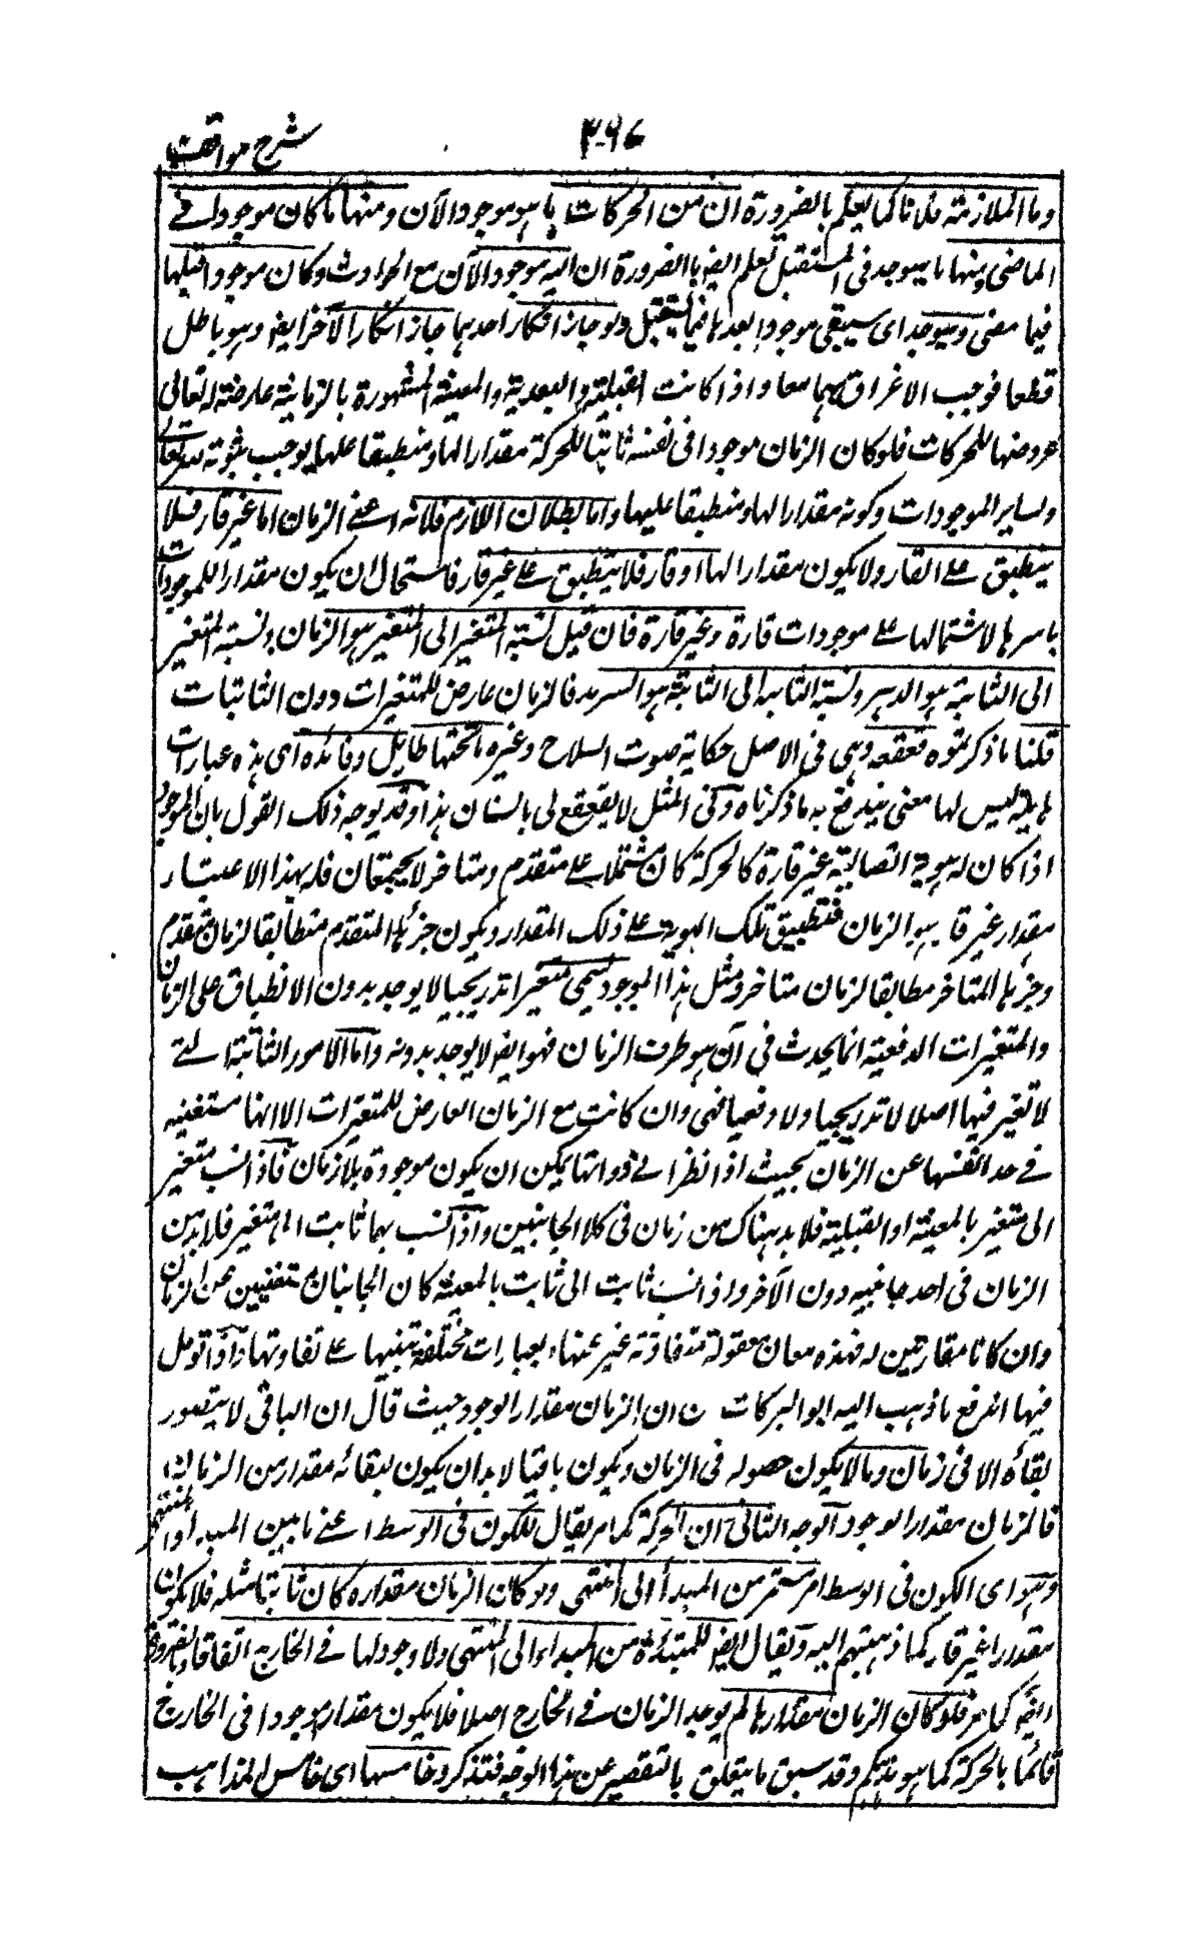 شرح مواقف
اما الملازمة فلانا كما يعلم بالضرورة ان من الحركات ما هو موجود الآن ومنها ما كان موجودا في
الماضى ومنها ما سيوجد فى المستقبل نعلم ايضا بالضرورة ان اليه موجود الآن مع الحوادث وكان موجودا قبلها
فيما مضى وسيوجد اى سيبقى موجودا بعدها فيما يستقبل ولو جاز انكار احدهما جاز انكار الآخر ايضا وهو باطل
قطعا فوجب الاعتراف بهما معا واذا كانت القبلية والبعدية والمعية المشهورة بالزمانية عارضة له تعالى
عروضها للحركات فلو كان الزمان موجودا فى نفسه ثابتا للحركة مقدارا لها ومنطبقا عليها لوجب ثبوته لله تعالى
ولساير الموجودات وكونه مقدارا لها ومنطبقا عليها واما بطلان اللازم فلانه اعنى الزمان اما غير قار فلا
ينطبق على القار ولا يكون مقدارا لها او قار فلا ينطبق على غير قار فاستحال ان يكون مقدارا للموجودات
باسرها لاشتمالها على موجودات قارة وغير قارة فان قيل نسبة المتغير الى المتغير هو الزمان ونسبة المتغير
الى الثابتة هو الدهر ونسبة الثابت الى الثابتة هو السرمد فالزمان عارض للمتغيرات دون الثابتات
قلنا ما ذكرتموه قعقعة وهى فى الاصل حكاية صوت السلاح وغيره ما تحتها طايل وفائدة اى هذه عبارات
هايلة ليس لها معنى يندفع به ما ذكرناه وفى المثل لا يقعقع لى بالشنان هذا وقد يوجه ذلك القول بان الموجود
اذا كان له هوية اتصالية غير قارة كالحركة كان مشتملا على متقدم ومتاخر لا يجتمعان فله بهذا الاعتبار
مقدار غير قار هو الزمان فتنطبق تلك الهوية على ذلك المقدار ويكون جزئها المتقدم مطابقا لزمان متقدم
وجزئها المتاخر مطابقا لزمان متاخر ومثل هذا الموجود يسمى متغيرا تدريجيا لا يوجد بدون الانطباق على الزمان
والمتغيرات الدفعية انما يحدث فى آن هو طرف الزمان فهو ايضا لا يوجد بدونه واما الامور الثابتة التى
لا تغير فيها اصلا لا تدريجيا ولا دفعيا فهى وان كانت مع الزمان العارض للمتغيرات الا انها مستغنية
فى حد انفسها عن الزمان بحيث اذا نظر الى ذواتها يمكن ان يكون موجودة بلا زمان فاذا نسب متغير
الى متغير بالمعية او القبلية فلا بد هناك من زمان فى كلا الجانبين واذا نسب بهما ثابت الى متغير فلا بد من
الزمان فى احد جانبيه دون الآخر واذا نسب ثابت الى ثابت بالمعية كان الجانبان مستغنيين عن الزمان
وان كانا مقارنين له فهذه معان معقولة متفاوتة عبر عنها بعبارات مختلفة تنبيها على تفاوتها واذا تومل
فيها اندفع ما ذهب اليه ابو البركات من ان الزمان مقدار الوجود حيث قال ان الباقى لا يتصور
بقاؤه الا فى زمان وما لا يكون حصوله فى الزمان ويكون باقيا لا بد ان يكون لبقائه مقدار من الزمان
فالزمان مقدار الوجود الوجه الثانى ان الحركة كما مر يقال للكون فى الوسط اعنى ما بين المبدا والمنتهى
وهو اى الكون فى الوسط امر مستمر من المبدأ الى المنتهى ولو كان الزمان مقداره كان ثابتا مثله فلا يكون
مقدارا غير قار كما ذهبتم اليه ويقال ايضا للممتدة من المبداء الى المنتهى ولا وجود لها فى الخارج اتفاقا وبالضرورة
ايضا كما مر فلو كان الزمان مقدارها لم يوجد الزمان فى الخارج اصلا فلا يكون مقدار موجودا فى الخارج
قائما بالحركة كما هو مذهبكم وقد سبق ما يتعلق بالتقصير عن هذا الوجه فتذكر وخامسها اى خامس المذاهب